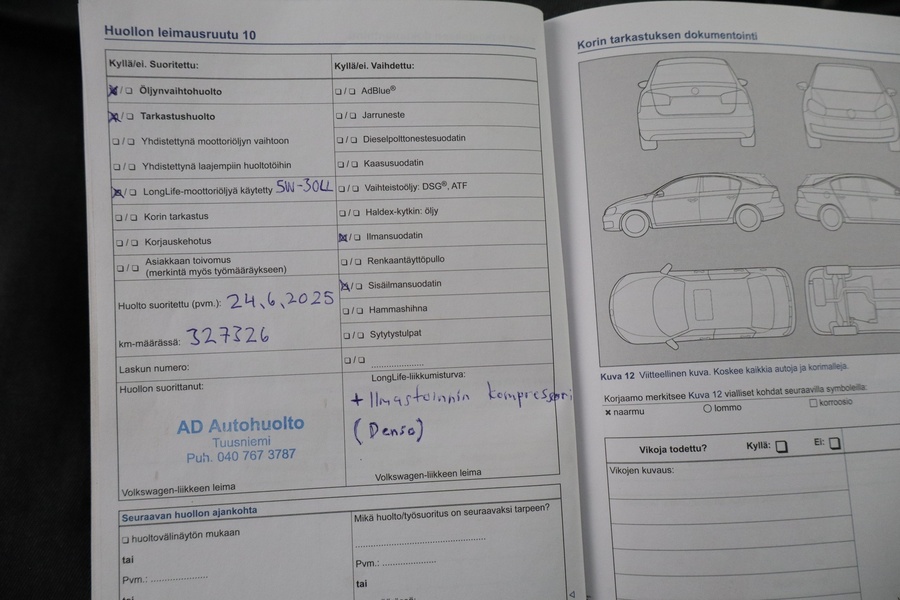 Huollon leimausruutu 10
Kyllä/ei. Suoritettu:
Öljynvaihtohuolto
Tarkastushuolto
Yhdistettynä moottoriöljyn vaihtoon
Yhdistettynä laajempiin huoltotöihin
LongLife-moottoriöljyä käytetty 5W-30LL
Korin tarkastus
Korjauskehotus
Asiakkaan toivomus
(merkintä myös työmääräykseen)
Huolto suoritettu (pvm.): 24.6.2025
km-määrässä: 327326
Laskun numero:
Huollon suorittanut:
AD Autohuolto
Tuusniemi
Puh. 040 767 3787
Volkswagen-liikkeen leima
Kyllä/ei. Vaihdettu:
AdBlue®
Jarruneste
Dieselpolttonestesuodatin
Kaasusuodatin
Vaihteistoöljy: DSG®, ATF
Haldex-kytkin: öljy
Ilmansuodatin
Renkaantäyttöpullo
Sisäilmansuodatin
Hammashihna
Sytytystulpat
LongLife-liikkumisturva:
+ Ilmastoinnin kompressori
(Denso)
Volkswagen-liikkeen leima
Seuraavan huollon ajankohta
huoltovälinäytön mukaan
tai
Pvm.:
Mikä huolto/työsuoritus on seuraavaksi tarpeen?
Pvm.:
tai
Korin tarkastuksen dokumentointi
Kuva 12 Viitteellinen kuva. Koskee kaikkia autoja ja korimalleja.
Korjaamo merkitsee Kuva 12 vialliset kohdat seuraavilla symboleilla:
× naarmu ○ lommo □ korroosio
Vikoja todettu? Kyllä: Ei:
Vikojen kuvaus: